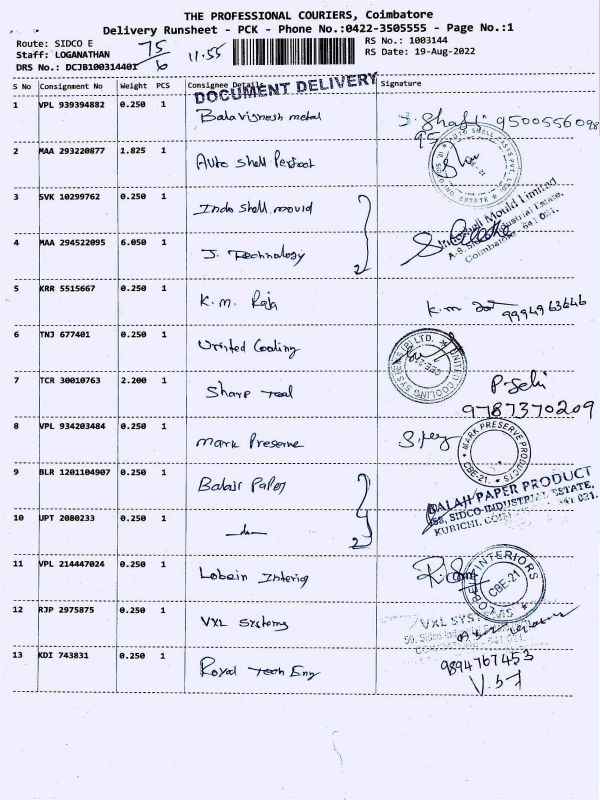 THE PROFESSIONAL COURIERS, Coimbatore
Delivery Runsheet - PCK - Phone No.:0422-3505555 - Page No.:1
Route: SIDCO E 75 11.55 RS No.: 1003144
Staff: LOGANATHAN RS Date: 19-Aug-2022
DRS No.: DCJB100314401 6
S No Consignment No Weight PCS Consignee Details Signature
DOCUMENT DELIVERY
1 VPL 939394882 0.250 1 Balavignesh metal 9500556098
95
2 MAA 293220877 1.825 1 Auto Shell Perfect
3 SVK 10299762 0.250 1 Indo Shell mould
Mould Limited
Industrial Estate,
Coimbatore - 641 021.
4 MAA 294522095 6.050 1 J. Technology 2
5 KRR 5515667 0.250 1 K.m. Raja K.m 9994963646
6 TNJ 677401 0.250 1 United Cooling UNITED COOLING SYSTEMS (P) LTD. CBE-21
7 TCR 30010763 2.200 1 Sharp Tool P. Selvi
9787370209
8 VPL 934203484 0.250 1 Mark Preserve MARK PRESERVE PRODUCTS CBE-21.
9 BLR 1201104907 0.250 1 Balaji Paper
BALAJI PAPER PRODUCT
SIDCO INDUSTRIAL ESTATE,
KURICHI, 641 021.
10 UPT 2080233 0.250 1 2
11 VPL 214447024 0.250 1 Lobein Interiq LOBEIN INTERIORS CBE-21
12 RJP 2975875 0.250 1 VXL Systems VXL SYSTEMS
13 KDI 743831 0.250 1 Royal Tech Eng 9894767453